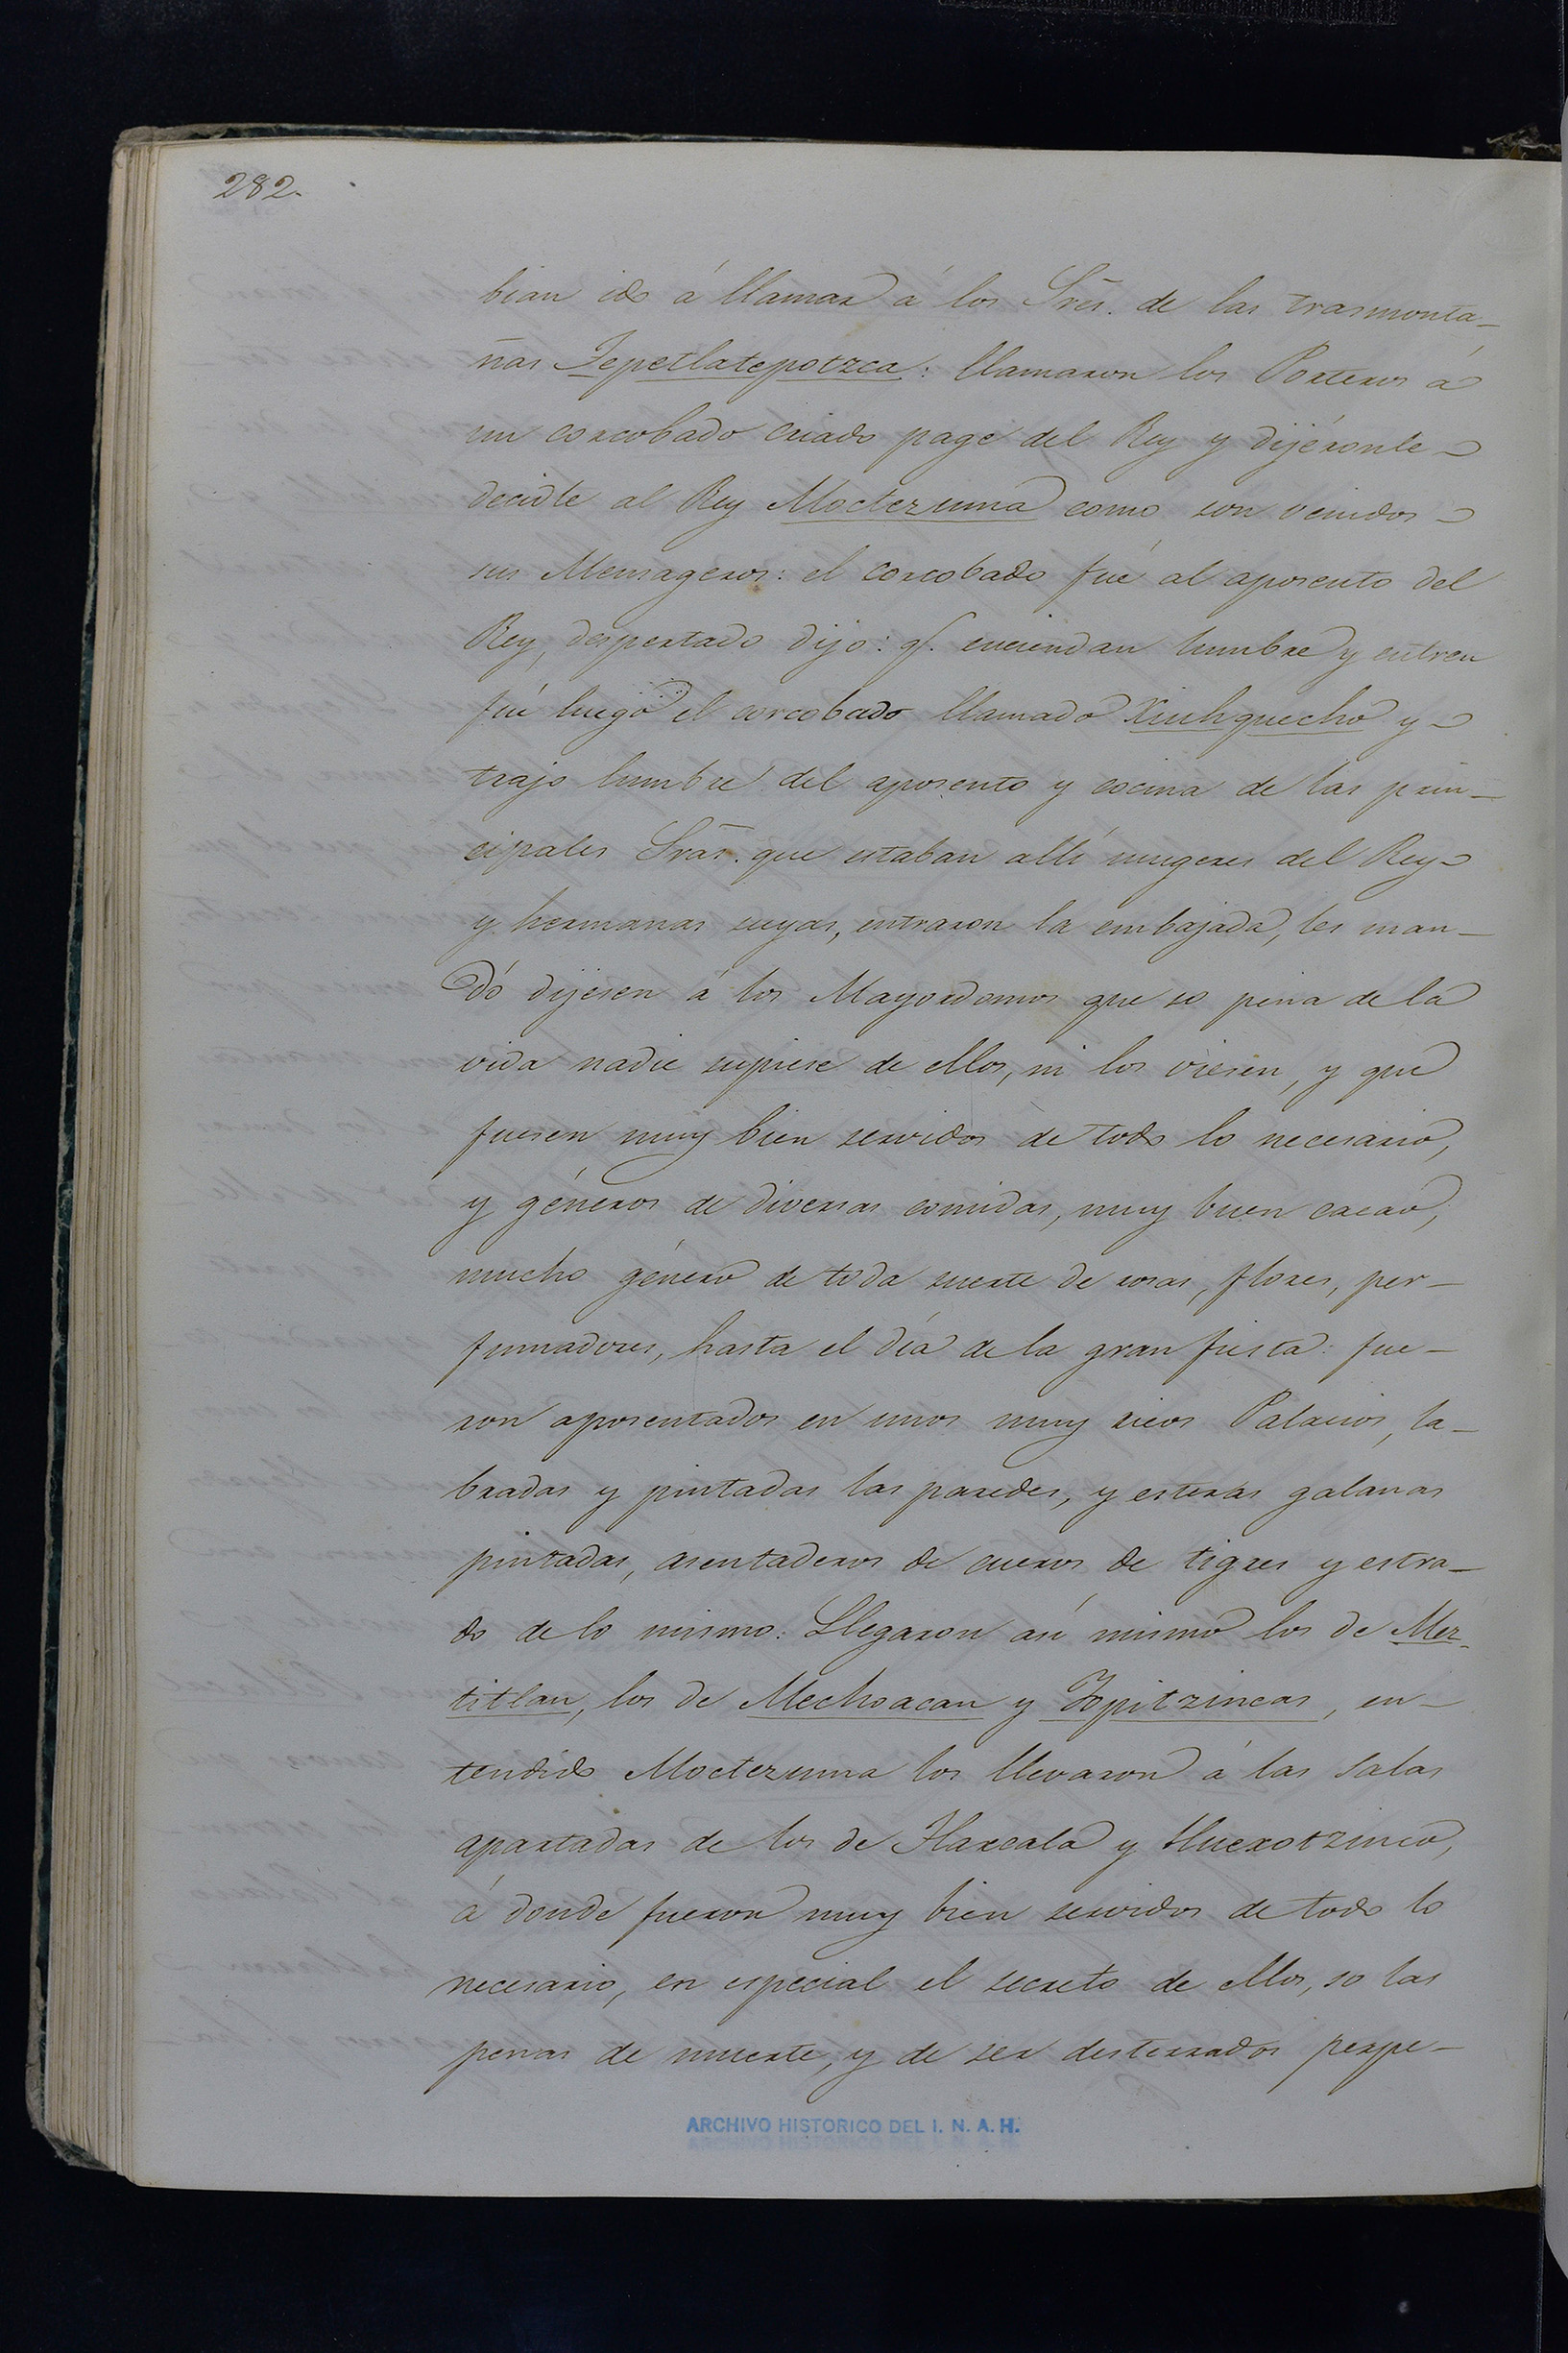 282.
bian ido á llamar á los Sres. de las trasmonta-
ñas Tepetlatepotzca: llamaron los Porteros á
un corcobado criado page del Rey y dijéronle
decidle al Rey Moctezuma como son venidos
sus Mensageros: el corcobado fué al aposento del
Rey, despertado dijo: q. enciendan lumbre y entren
fué luego el corcobado llamado Xiuhquecho y
trajo lumbre del aposento y cocina de las prin-
cipales Sras. que estaban allí mugeres del Rey
y hermanas suyas, entraron la embajada, les man-
dó dijesen á los Mayordomos que so pena de la
vida nadie supiese de ellos, ni los viesen, y que
fuesen muy bien servidos de todo lo necesario,
y géneros de diversas comidas, muy buen cacao,
mucho género de toda suerte de rosas, flores, per-
fumadores, hasta el día de la gran fiesta: fue-
ron aposentados en unos muy ricos Palacios, la-
bradas y pintadas las paredes, y esteras galanas
pintadas, asentaderos de cueros de tigres y estra-
do de lo mismo: Llegaron así mismo los de Mez-
titlan, los de Mechoacan y Yopitzincas, en-
tendido Moctezuma los llevaron á las salas
apartadas de los de Tlaxcala y Huexotzinco,
á donde fueron muy bien servidos de todo lo
necesario, en especial el secreto de ellos, so las
penas de muerte, y de ser desterrados perpe-
ARCHIVO HISTORICO DEL I. N. A. H.